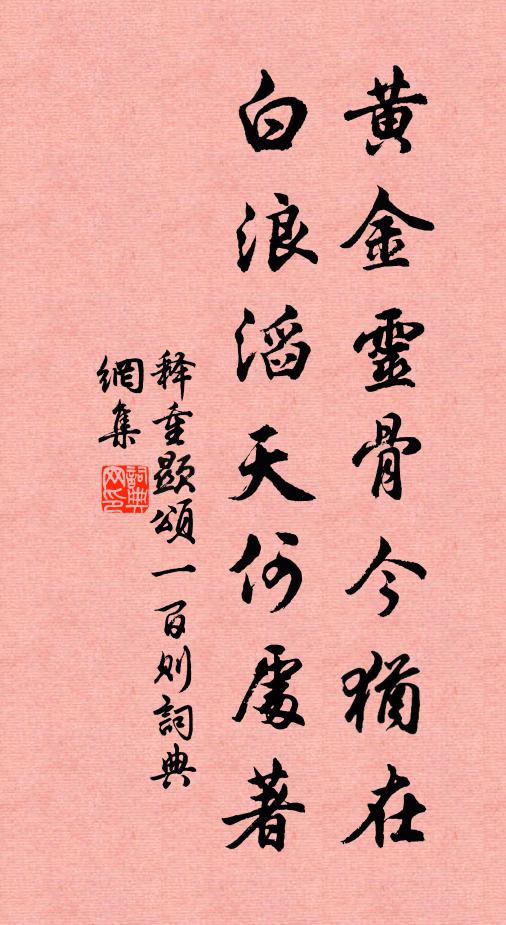 黃金靈骨今猶在
白浪滔天何處著
释重顯頌一百则詞典
網集
詞典
网印